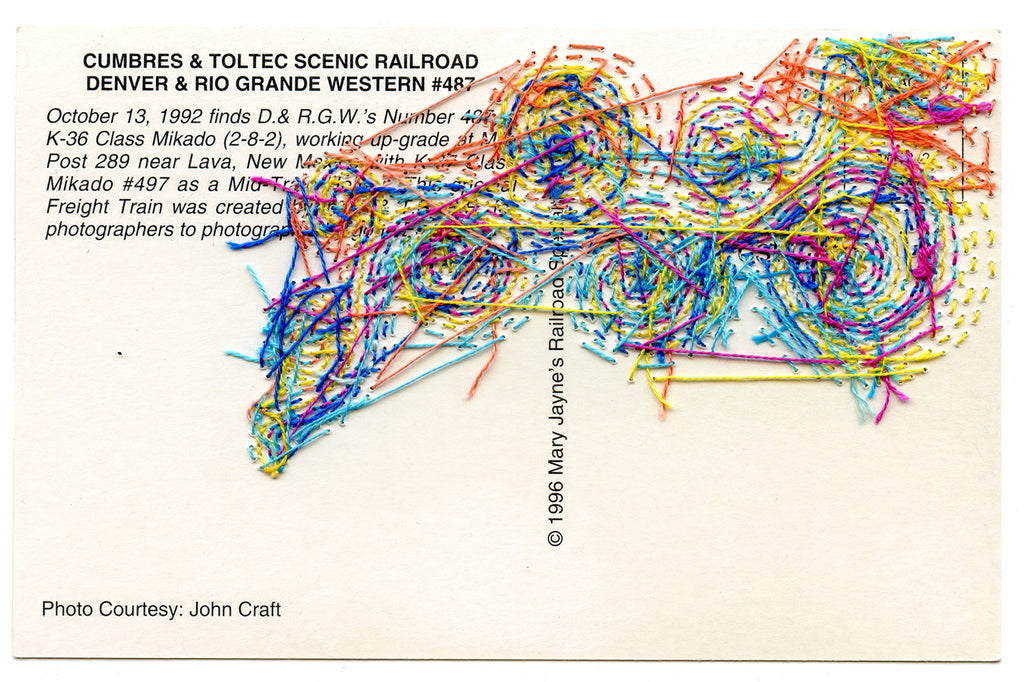 CUMBRES & TOLTEC SCENIC RAILROAD
DENVER & RIO GRANDE WESTERN #487
October 13, 1992 finds D.& R.G.W.'s Number
K-36 Class Mikado (2-8-2), working up-grade at
Post 289 near Lava, New
Mikado #497 as a
Freight Train was created
photographers to
© 1996 Mary Jayne's Railroad
Photo Courtesy: John Craft